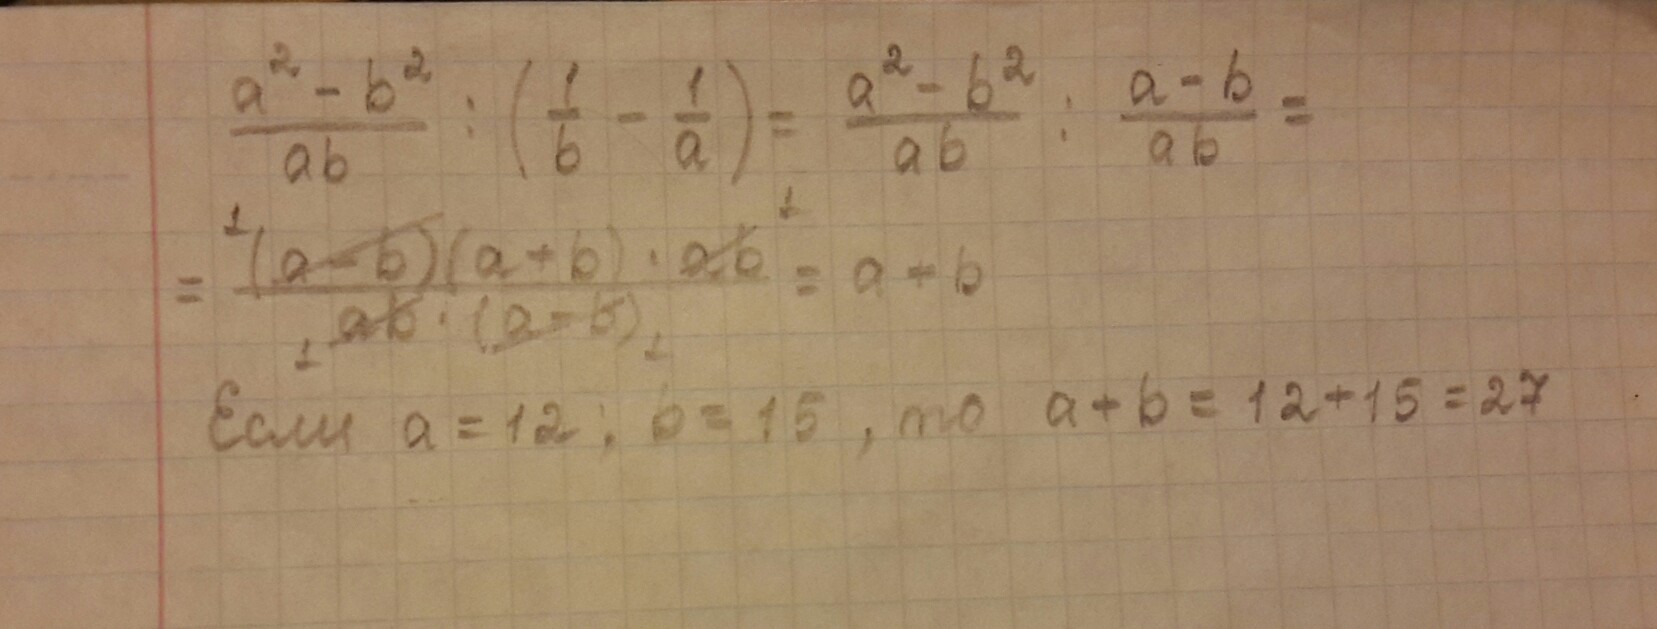 a² - b² / ab : (1/b - 1/a) = a² - b² / ab : a - b / ab =
= (a - b)(a + b) · ab / ab · (a - b) = a + b
Если a = 12; b = 15, то a + b = 12 + 15 = 27